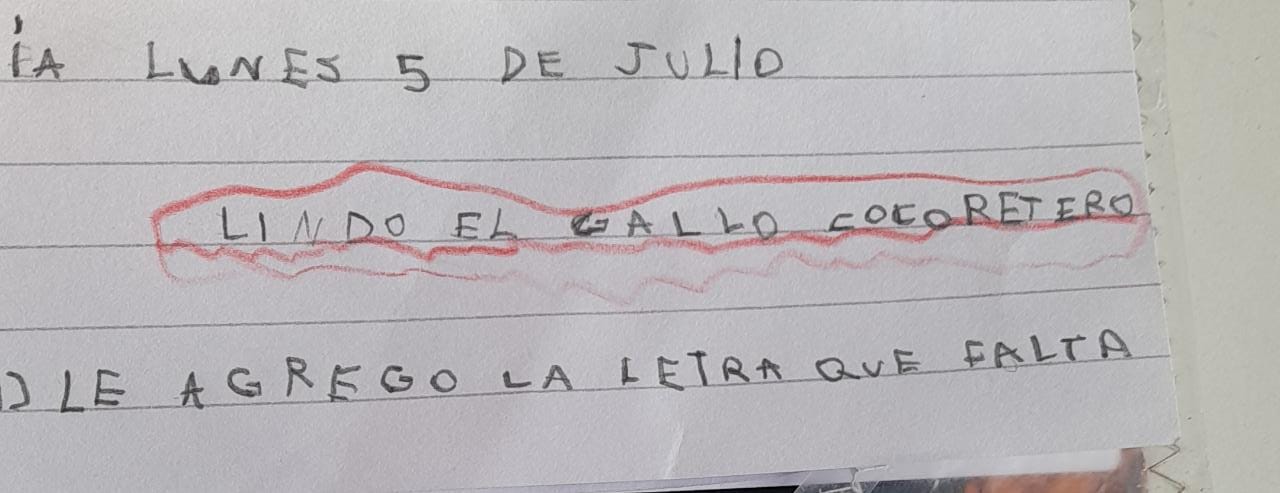 ÍA LUNES 5 DE JULIO
LINDO EL GALLO COCORETERO
) LE AGREGO LA LETRA QUE FALTA